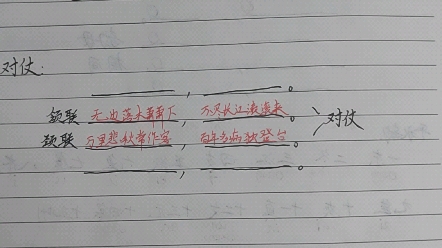 对仗:
颔联 无边落木萧萧下，不尽长江滚滚来。
颈联 万里悲秋常作客，百年多病独登台。
对仗